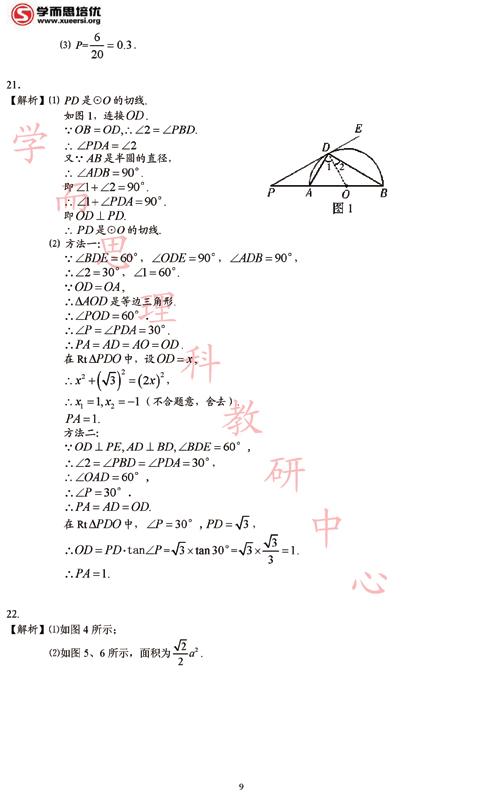 学而思培优
www.xueersi.org
⑶ P=6/20=0.3.
21.
【解析】⑴ PD是⊙O的切线.
如图1，连接OD.
∵OB=OD,∴∠2=∠PBD.
∴∠PDA=∠2
又∵AB是半圆的直径，
∴∠ADB=90°.
即∠1+∠2=90°.
∴∠1+∠PDA=90°.
即OD⊥PD.
∴PD是⊙O的切线.
E
D
1 2
P A O B
图1
⑵ 方法一:
∵∠BDE=60°，∠ODE=90°，∠ADB=90°，
∴∠2=30°，∠1=60°.
∵OD=OA，
∴ΔAOD是等边三角形.
∴∠POD=60°.
∴∠P=∠PDA=30°.
∴PA=AD=AO=OD.
在RtΔPDO中，设OD=x，
∴x²+(√3)²=(2x)²，
∴x₁=1,x₂=−1（不合题意，舍去）.
PA=1.
方法二:
∵OD⊥PE,AD⊥BD,∠BDE=60°，
∴∠2=∠PBD=∠PDA=30°，
∴∠OAD=60°，
∴∠P=30°.
∴PA=AD=OD.
在RtΔPDO中，∠P=30°,PD=√3，
∴OD=PD·tan∠P=√3×tan30°=√3×√3/3=1.
∴PA=1.
22.
【解析】⑴如图4所示;
⑵如图5、6所示，面积为√2/2a².
学而思理科教研中心
9